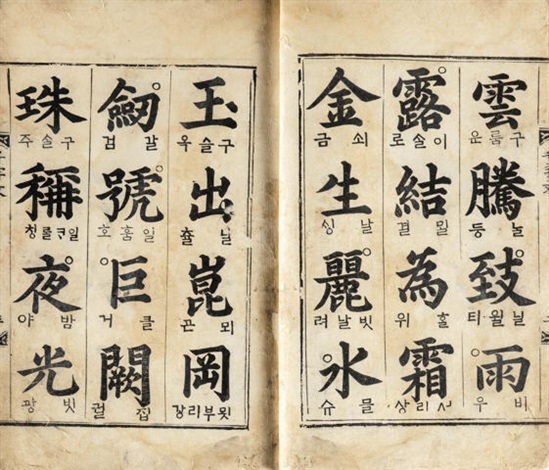 雲 구룸 운
騰 늘 등
致 닐윌 티
雨 비 우
露 이슬 로
結 밀 결
為 훌 위
霜 서리 상
金 쇠 금
生 날 싱
麗 빗날 려
水 믈 슈
玉 구슬 옥
出 날 츌
崑 뫼 곤
岡 묏부리 강
劒 갈 검
號 일홈 호
巨 클 거
闕 집 궐
珠 구슬 주
稱 칭
夜 밤 야
光 빗 광